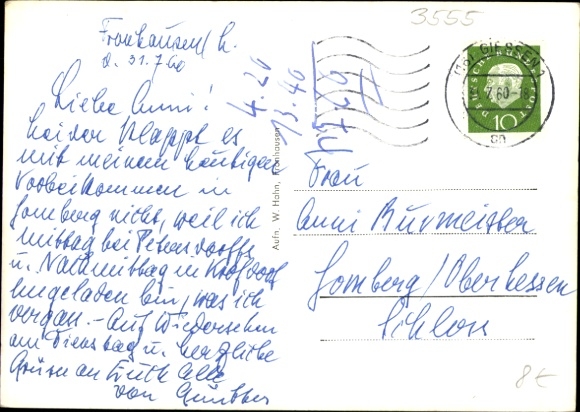 3555
Fronhausen/L.
d. 31.7.60
Liebe Anni!
Leider klappt es
mit meinem heutigen
Vorbeikommen in
Homberg nicht, weil ich
mittag bei Petersdorffs
u. Nachmittag in Krofdorf
eingeladen bin, was ich
vergaß. - Auf Wiedersehen
am Dienstag u. herzliche
Grüsse an Euch Alle
von Günther
4.20
13.40
Aufn. W. Hahn, Fronhausen
GIESSEN 1
7.60-18
DEUTSCHE BUNDESPOST
10
Frau
Anni Burmeister
Homberg/Oberhessen
Schloss
8€